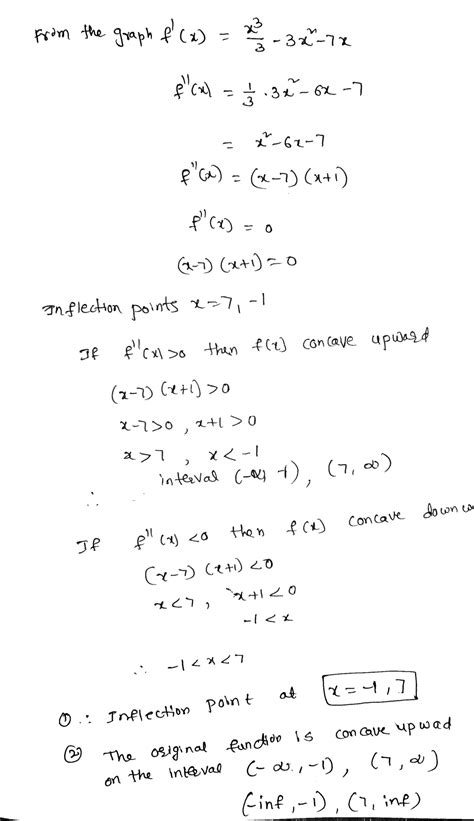 From the graph f'(x) = x³/3 - 3x² - 7x
f''(x) = 1/3 · 3x² - 6x - 7
= x² - 6x - 7
f''(x) = (x-7) (x+1)
f''(x) = 0
(x-7) (x+1) = 0
Inflection points x = 7, -1
If f''(x) > 0 then f(x) concave upward
(x-7) (x+1) > 0
x-7 > 0 , x+1 > 0
x > 7 , x < -1
∴ interval (-∞, -1) , (7, ∞)
If f''(x) < 0 then f(x) concave down
(x-7) (x+1) < 0
x < 7 , x+1 < 0
-1 < x
∴ -1 < x < 7
① ∴ Inflection point at x = -1, 7
② The original function is concave upwad
on the interval (-∞, -1) , (7, ∞)
(-inf, -1) , (7, inf)